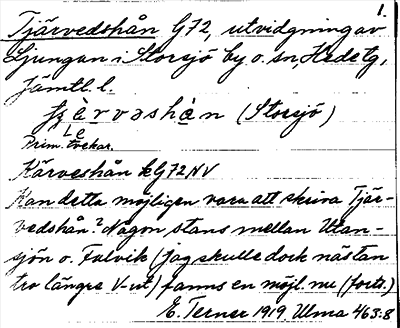 1.
Tjärvedshån G72, utvidgning av
Ljungan i Storsjö by o. sn, Hede tg,
Jämtl. l.
èrvashàn (Storsjö)
Le
Prim. tvekar.
Kärveshån kG72NV
Kan detta möjligen vara att skriva Tjär-
vedshån? Någon stans mellan Utan-
sjön o. Falvik (jag skulle dock nästan
tro längre V-ut) fanns en möjl. nu (forts.)
E. Terner 1919 Ulma 463:8